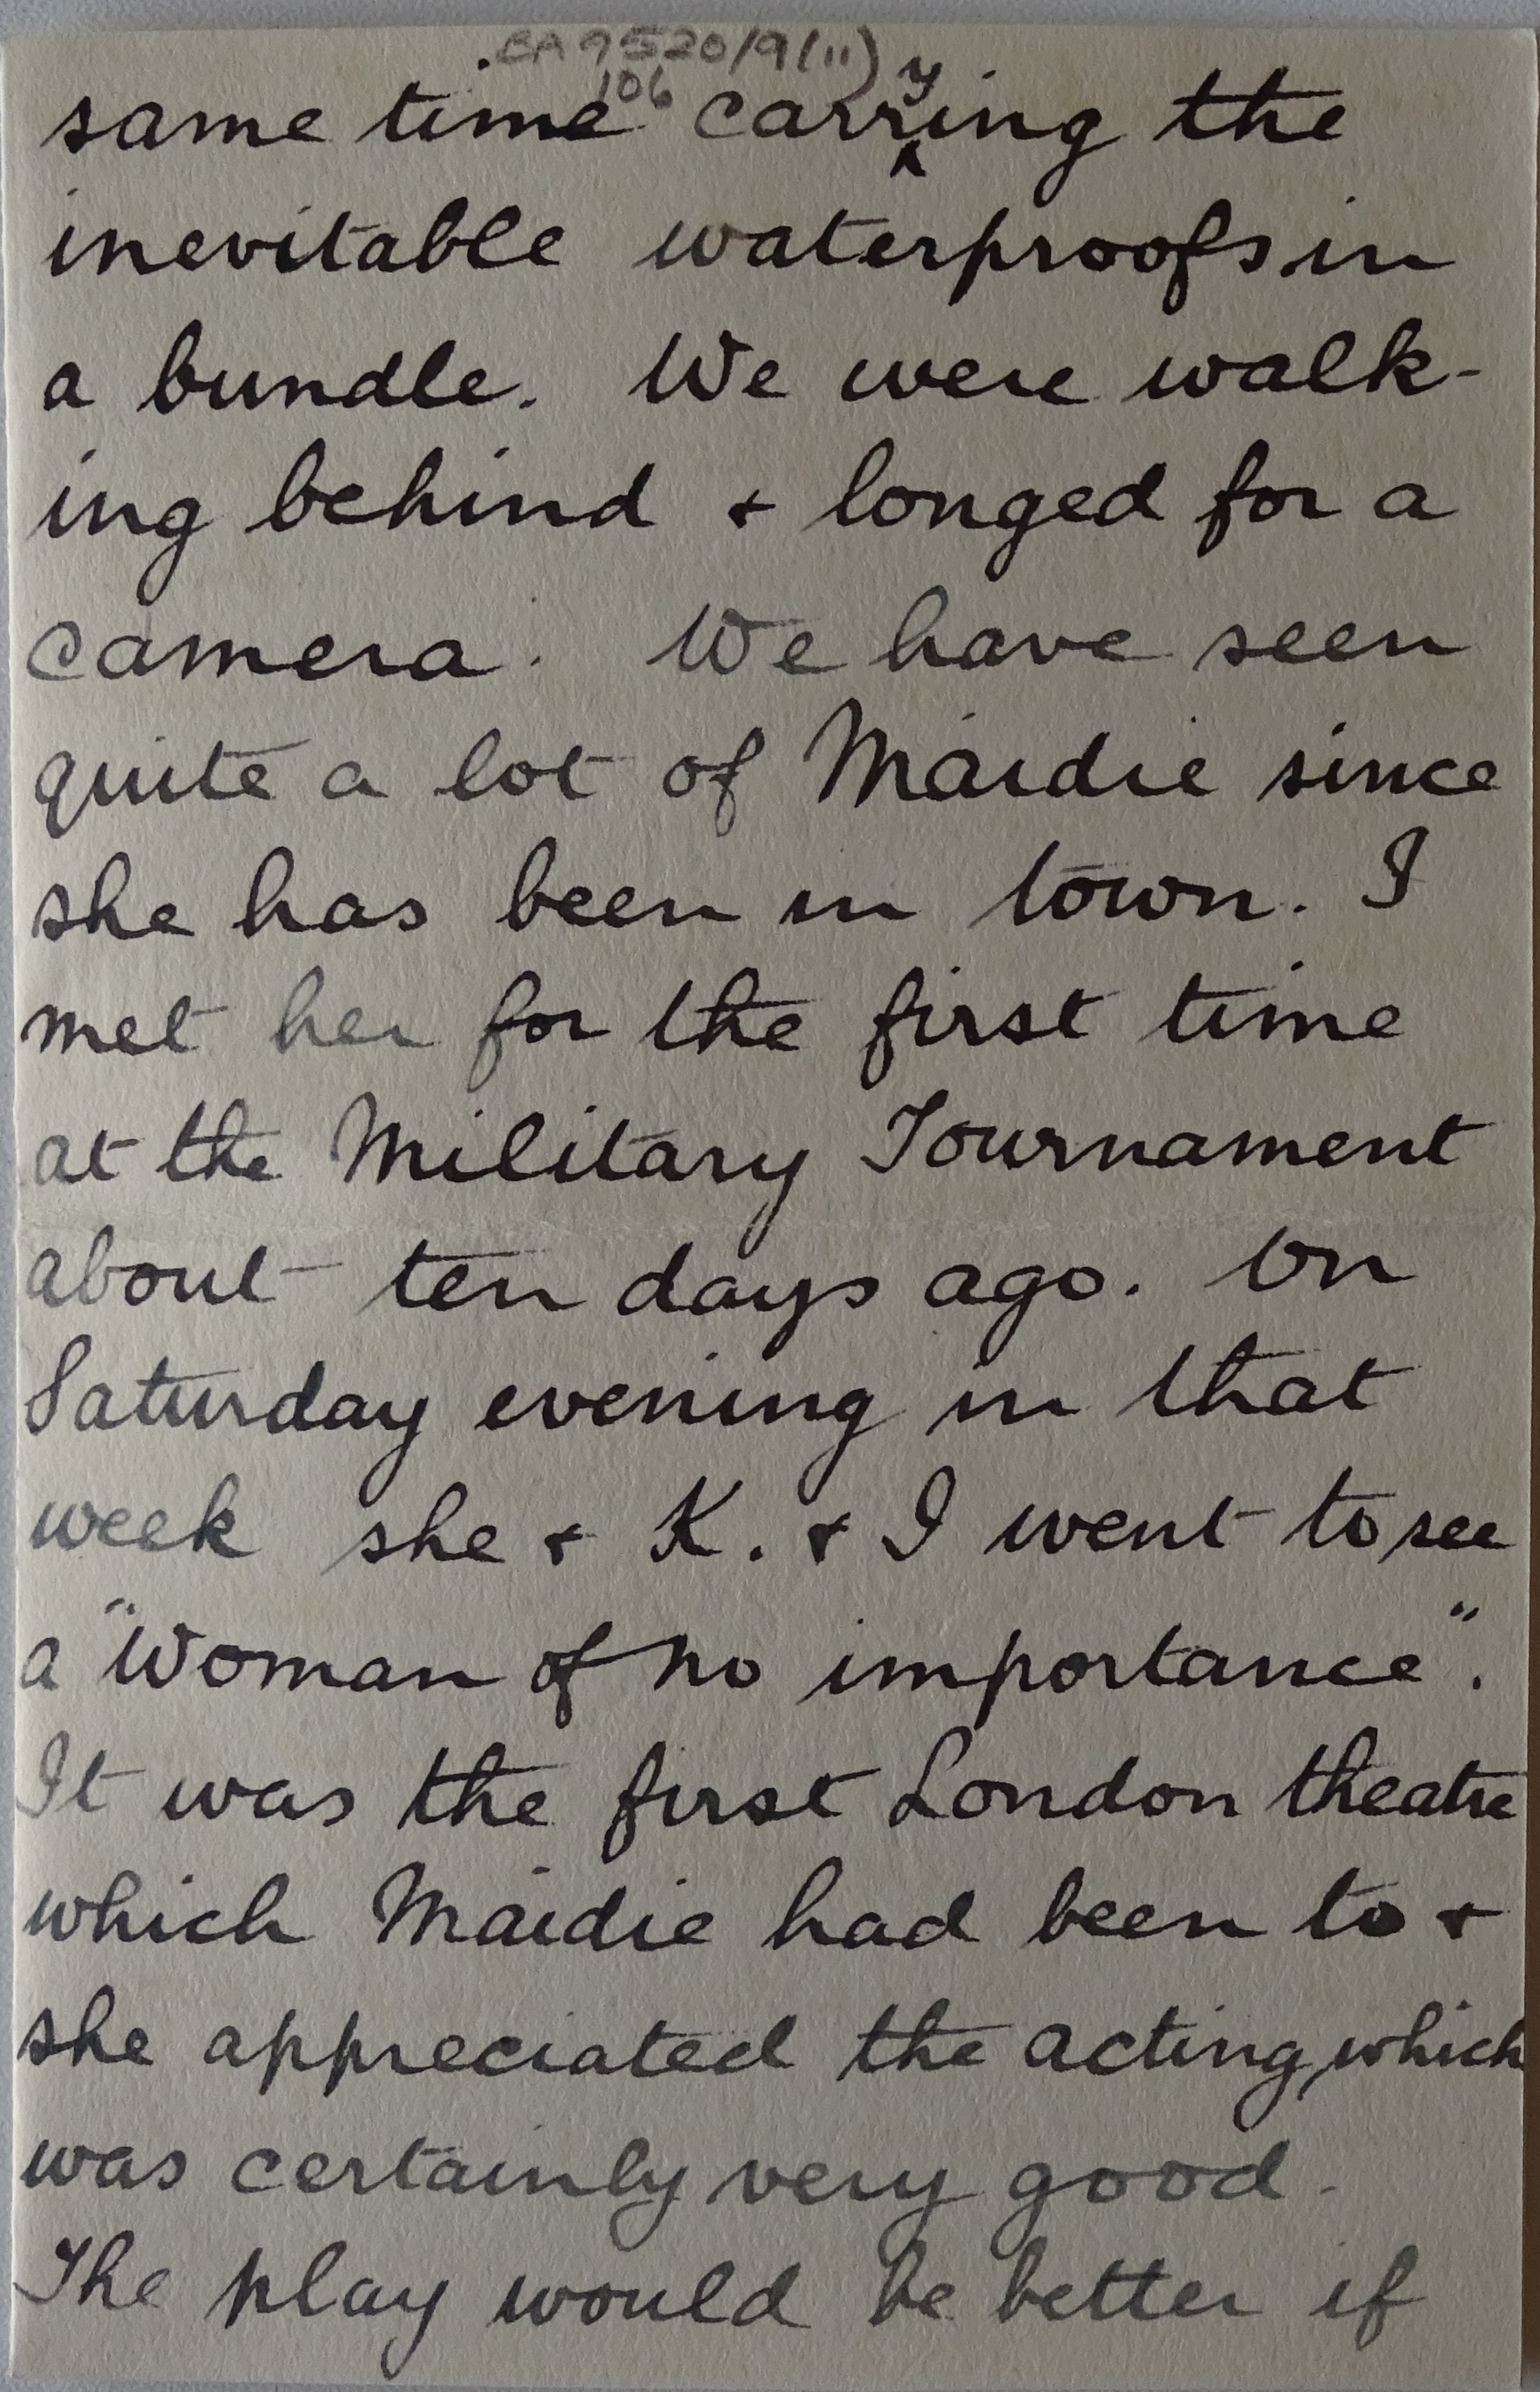 EA 7520/9(11)
106
same time carrying the
inevitable waterproofs in
a bundle. We were walk-
ing behind + longed for a
camera. We have seen
quite a lot of Maidie since
she has been in town. I
met her for the first time
at the Military Tournament
about ten days ago. On
Saturday evening in that
week she + K. + I went to see
a "Woman of no importance".
It was the first London theatre
which Maidie had been to +
she appreciated the acting, which
was certainly very good.
The play would be better if